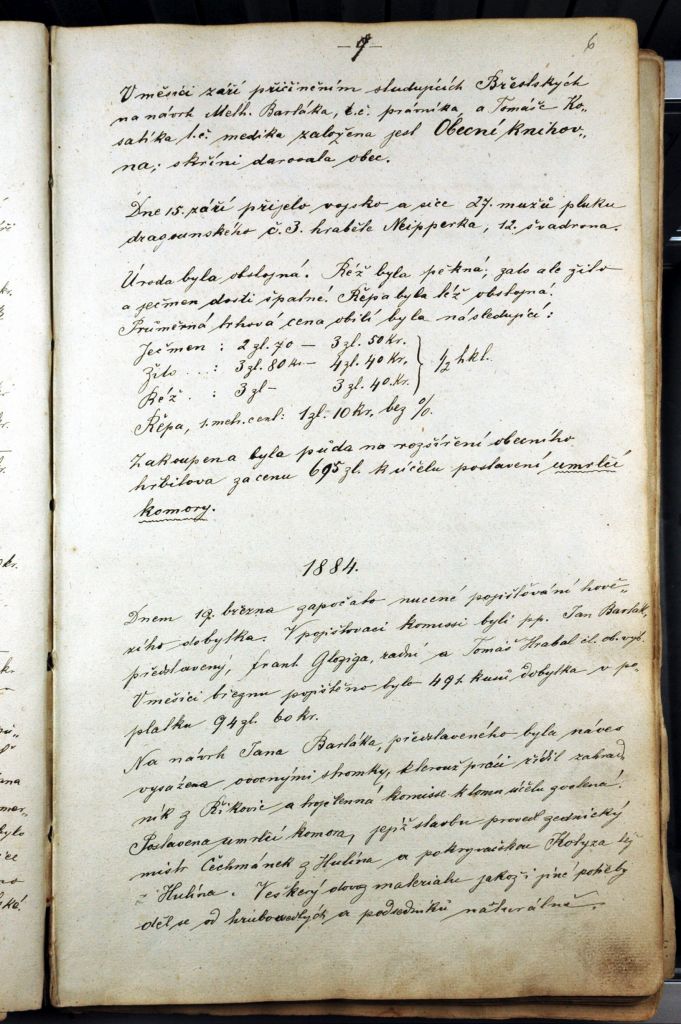 — 9 —
6
V měsíci září přičiněním studujících Břestských
na návrh Meth. Barťáka, t. č. právníka, a Tomáše Ko-
satíka t. č. medika založena jest Obecní knihov-
na; skříni darovala obec.
Dne 15. září přijelo vojsko a sice 27. mužů pluku
dragounského č. 3. hraběte Neipperka, 12. švadrona.
Úroda byla obstojná. Réž byla pěkná; zato ale žito
a ječmen dosti špatné. Řepa byla též obstojná.
Průměrná trhová cena obilí byla následující:
Ječmen : 2 zl. 70 — 3 zl. 50 kr.
Žito . . : 3 zl. 80 kr. — 4 zl. 40 kr. } 1/2 hkl.
Réž . : 3 zl — 3 zl. 40. kr.
Řepa, 1. meh. cent: 1 zl — 10 kr. bez %.
Zakoupena byla půda na rozšíření obecního
hřbitova za cenu 695 zl. k účelu postavení umrlčí
komory.
1884.
Dnem 19. března započato nucené pojišťování hově-
zího dobytka. V pojišťovací komissi byli pp. Jan Barťák,
představený, Frant Gloziga, radní a Tomáš Hrabal čl. ob. výb.
V měsíci březnu pojištěno bylo 491. kusů dobytka v po-
platku 94 zl. 60 kr.
Na návrh Jana Barťáka, představeného byla náves
vysázena ovocnými stromky, kterouž práci řídil zahrad
ník z Říkovic a trojčlenná komisse k tomu účelu zvolená.
Postavena umrlčí komora, jejíž stavbu provedl zednický
mistr Čechmánek z Hulína a pokryvačskou Kolyza též
z Hulína. Veškerý dovoz materialu jakož i jiné potřeby
děl se od hruborolných a podsedníků naturálně.